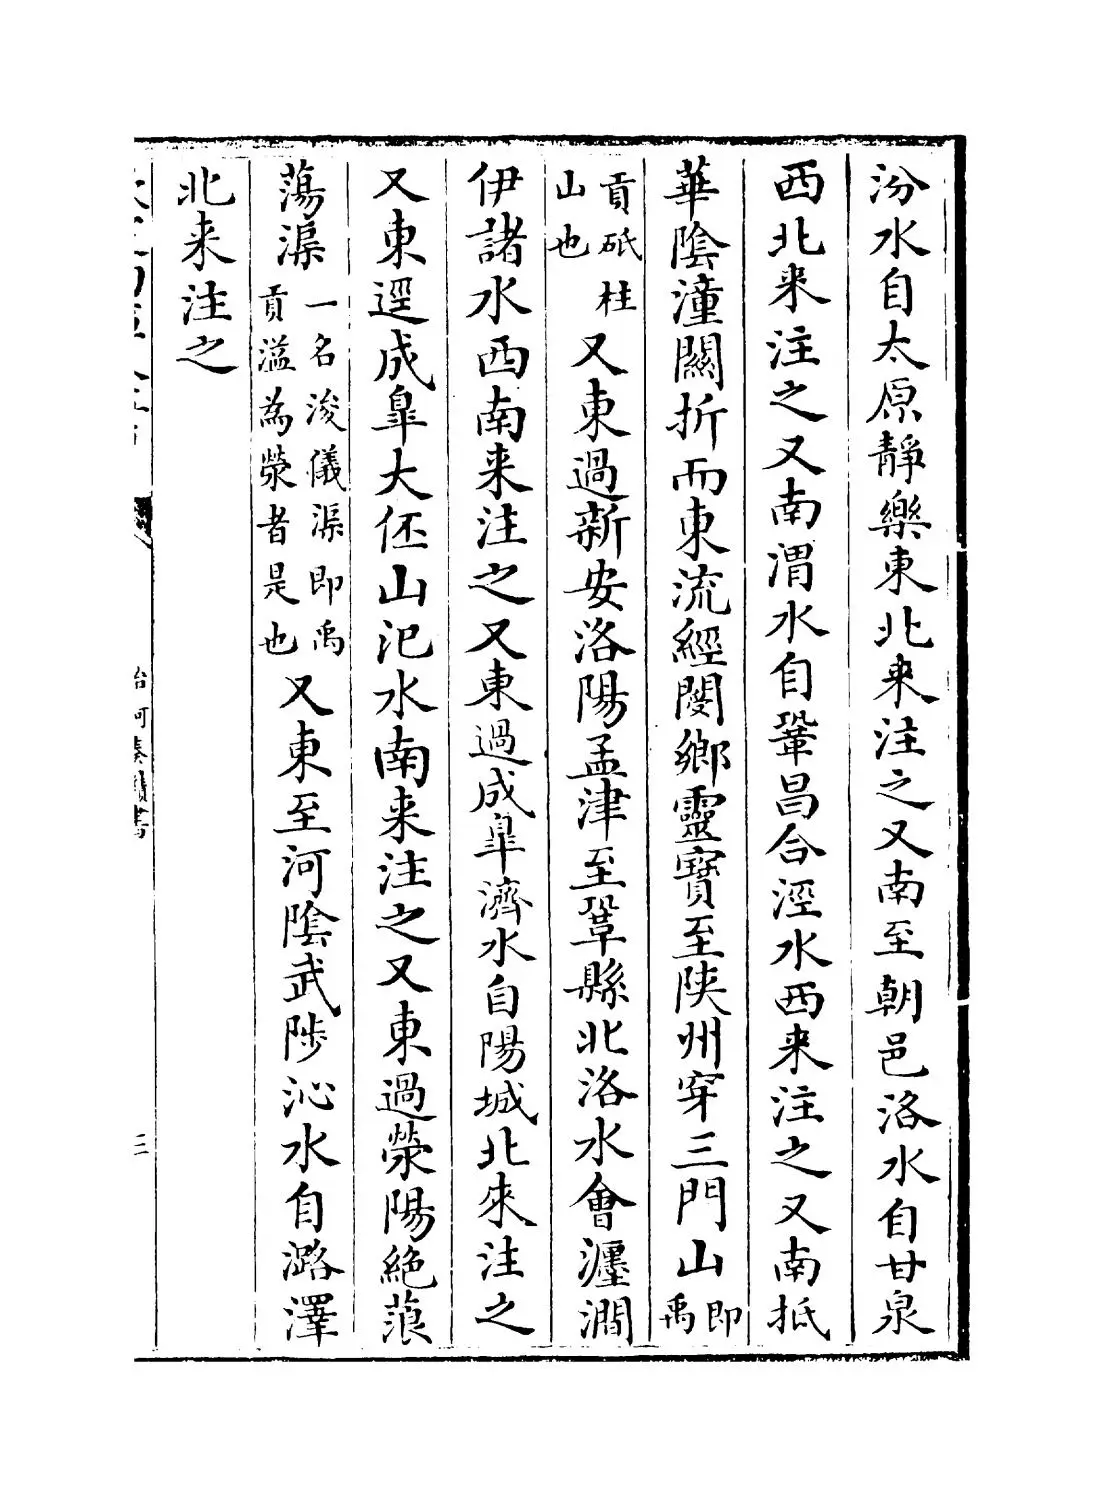 汾水自太原靜樂東北来注之又南至朝邑洛水自甘泉
西北来注之又南渭水自鞏昌合涇水西来注之又南抵
華陰潼關折而東流經閿鄉靈寶至陜州穿三門山即禹
貢砥柱山也又東過新安洛陽孟津至鞏縣北洛水會瀍澗
伊諸水西南来注之又東過成皐濟水自陽城北來注之
又東逕成皐大伾山汜水南来注之又東過滎陽絶蒗
蕩渠一名浚儀渠即禹貢溢為滎者是也又東至河陰武陟沁水自潞澤
北来注之
治河奏績書
三